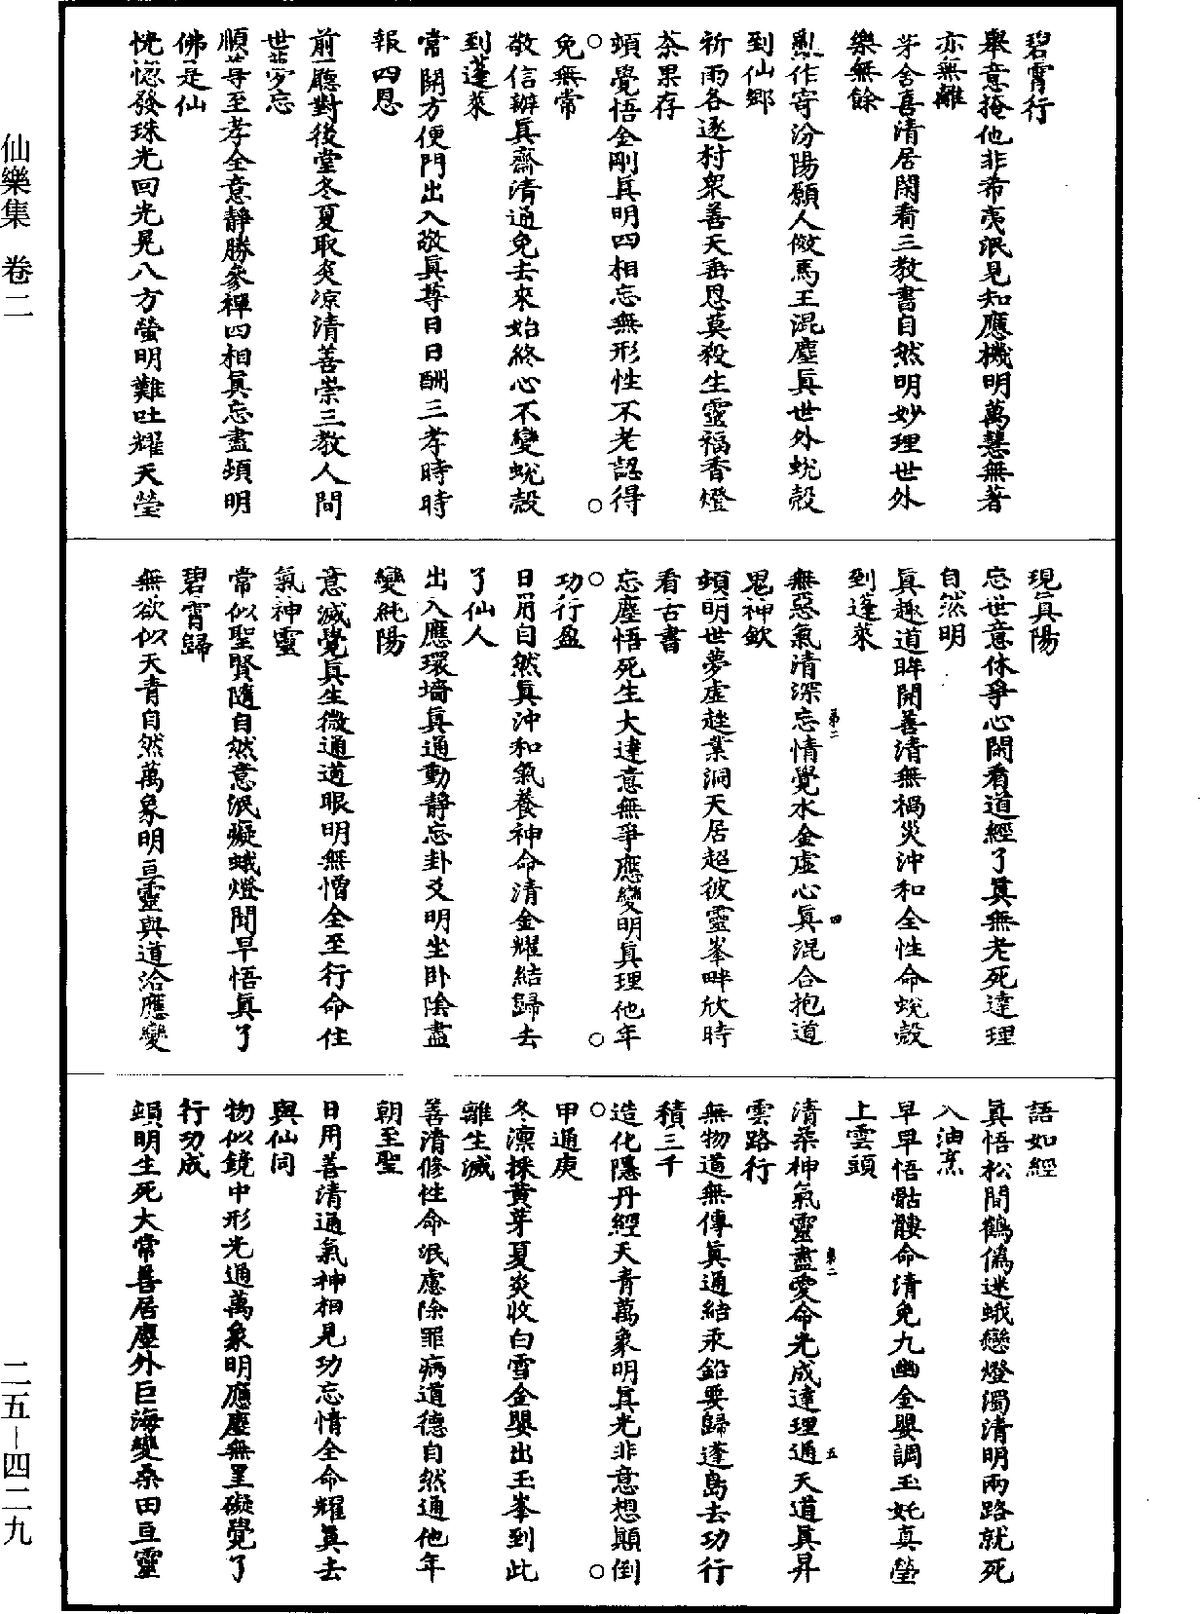 碧霄行
舉意掩他非希夷泯見知應機明萬慧無著
亦無離
茅舍喜清居閑看三教書自然明妙理世外
樂無餘
亂作寄汾陽願人倣馬王混塵眞世外蛻殼
到仙鄉
祈雨各逐村衆善天垂恩莫殺生靈福香燈
茶果存
頭覺悟金剛眞明四相忘無形性不老認得
免無常
○○
敬信辦眞齋清通免去來始終心不變蛻殼
到蓬萊
常開方便門出入敬眞尊日日酬三孝時時
報四恩
前聽對後堂冬夏取炎凉清善崇三教人間
世夢忘
順尊至孝全意靜勝參禪四相眞忘盡頓明
佛是仙
恍惚發珠光回光晃八方螢明難吐耀天瑩
現眞陽
忘世意休爭心閑看道經了眞無老死達理
自然明
眞趣道眸開善清無禍災沖和全性命蛻殼
到蓬萊
無惡氣清深忘情覺水金虛心眞混合抱道
第二
四
鬼神欽
頓明世夢虛趖業洞天居超彼靈峯畔欣時
看古書
忘塵悟死生大達意無爭應變明眞理他年
功行盈
○○
日用自然眞沖和氣養神命清金耀結歸去
了仙人
出入應環墻眞通動靜忘卦爻明坐卧陰盡
變純陽
意滅覺眞生微通道眼明無憎全至行命住
氣神靈
常似聖賢隨自然意泯癡蛾燈聞早悟眞了
碧霄歸
無欲似天青自然萬象明亘靈與道洽應變
語如經
眞悟松間鶴僞迷蛾戀燈濁清明兩路就死
入油烹
早早悟骷髏命清免九幽金嬰調玉姹真瑩
上雲頭
清柔神氣靈盡愛命光成達理通天道眞昇
第二
五
雲路行
無物道無傳眞通結汞鉛要歸蓬島去功行
積三千
造化隱丹經天青萬象明眞光非意想顚倒
甲通庚
○○
冬凛採黃芽夏炎收白雪金嬰出玉峯到此
離生滅
善清修性命泯慮除罪病道德自然通他年
朝至聖
日用善清通氣神相見功忘情全命耀眞去
與仙同
物似鏡中形光通萬象明應塵無罣礙覺了
行功成
頭明生死大常善居塵外巨海變桑田亘靈
仙樂集 卷二
二五—四二九